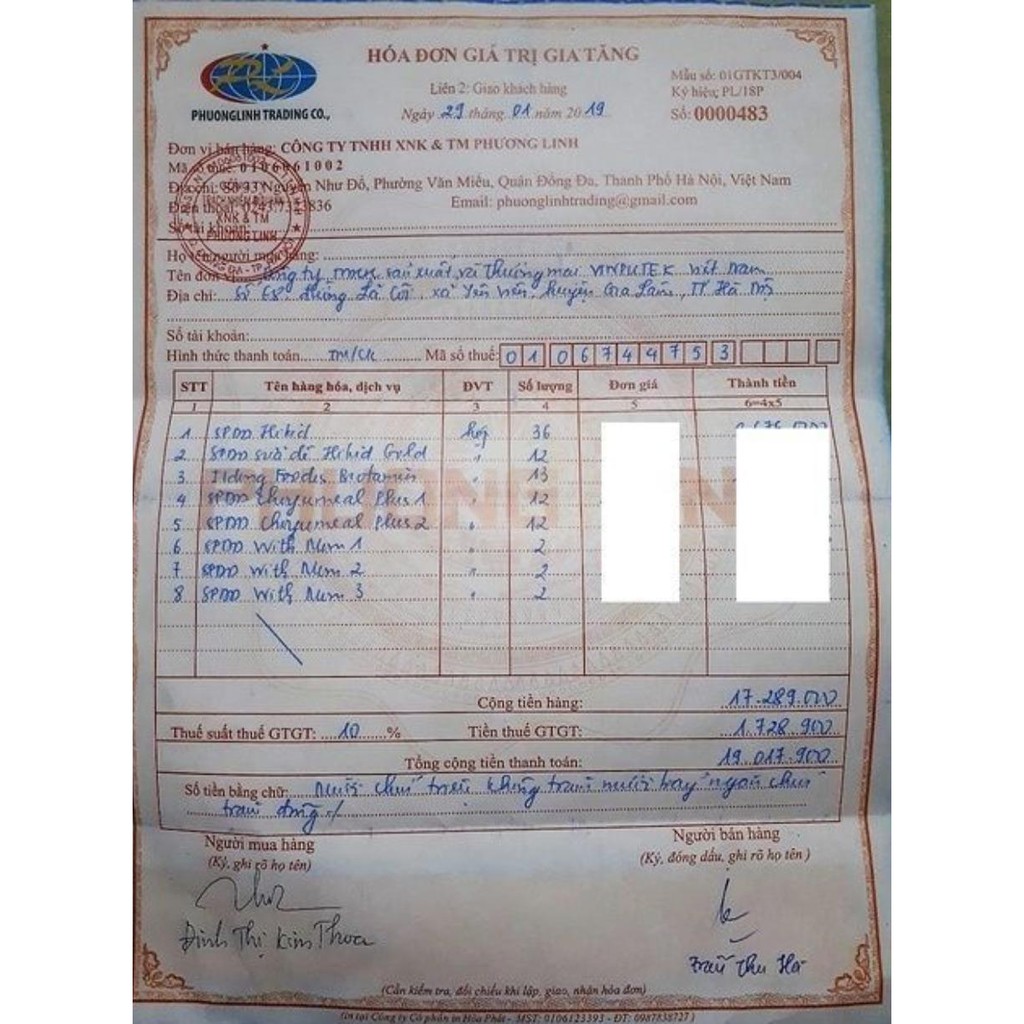 HÓA ĐƠN GIÁ TRỊ GIA TĂNG
Liên 2: Giao khách hàng
Ngày 29 tháng 01 năm 2019
Mẫu số: 01GTKT3/004
Ký hiệu: PL/18P
Số: 0000483
PHUONGLINH TRADING CO.,
Đơn vị bán hàng: CÔNG TY TNHH XNK & TM PHƯƠNG LINH
Mã số thuế: 0106061002
Địa chỉ: Số 93 Nguyễn Như Đổ, Phường Văn Miếu, Quận Đống Đa, Thành Phố Hà Nội, Việt Nam
Điện thoại: Email: phuonglinhtrading@gmail.com
Số tài khoản:
XNK & TM
PHƯƠNG LINH
Họ tên người mua hàng:
Tên đơn vị: Công ty TNHH sản xuất và Thương mại VINPUTEK Việt Nam
Địa chỉ: Số E8, đường Lã Côi, xã Yên Viên, huyện Gia Lâm, TP Hà Nội
Số tài khoản:
Hình thức thanh toán: TM/CK Mã số thuế: 0106744753
STT Tên hàng hóa, dịch vụ ĐVT Số lượng Đơn giá Thành tiền
1 2 3 4 5 6=4x5
1 SPDD Hikid hộp 36
2 SPDD sữa dê Hikid Gold " 12
3 Ildong Foodis Biotamin " 13
4 SPDD Choyumeal Plus 1 " 12
5 SPDD Choyumeal Plus 2 " 12
6 SPDD With Mum 1 " 2
7 SPDD With Mum 2 " 2
8 SPDD With Mum 3 " 2
Cộng tiền hàng: 17.289.000
Thuế suất thuế GTGT: 10 % Tiền thuế GTGT: 1.728.900
Tổng cộng tiền thanh toán: 19.017.900
Số tiền bằng chữ: Mười chín triệu không trăm mười bảy ngàn chín
trăm đồng./
Người mua hàng Người bán hàng
(Ký, ghi rõ họ tên) (Ký, đóng dấu, ghi rõ họ tên)
Đinh Thị Kim Thoa
Trần Thu Hà
(Cần kiểm tra, đối chiếu khi lập, giao, nhận hóa đơn)
(In tại Công ty Cổ phần in Hòa Phát - MST: 0106123393 - ĐT: 0987838727)